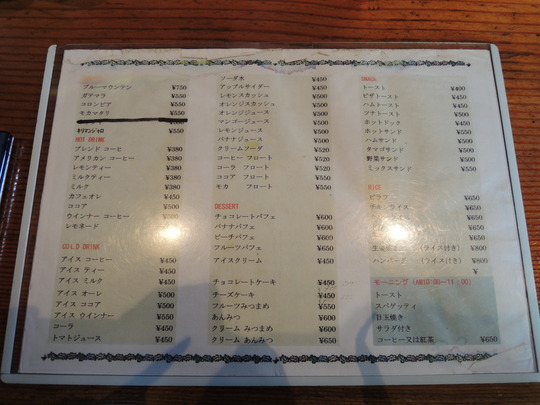 ブルーマウンテン ¥750
ガテマラ ¥550
コロンビア ¥550
モカマタリ ¥550
キリマンジャロ ¥550
HOT DRINK
ブレンド コーヒ ¥380
アメリカン コーヒー ¥380
レモンティー ¥380
ミルクティー ¥380
ミルク ¥380
カフェオレ ¥450
ココア ¥500
ウインナー コーヒー ¥500
レモネード
COLD DRINK
アイス コーヒー ¥450
アイス ティー ¥450
アイス ミルク ¥450
アイス オーレ ¥500
アイス ココア ¥500
アイス ウインナー ¥550
コーラ ¥450
トマトジュース ¥450
ソーダ水 ¥450
アップルサイダー ¥450
レモンスカッシュ ¥500
オレンジスカッシュ ¥500
オレンジジュース ¥500
マンゴージュース ¥500
レモンジュース ¥500
バナナジュース ¥500
クリームソーダ ¥520
コーヒー フロート ¥520
コーラ フロート ¥520
ココア フロート ¥550
モカ フロート ¥550
DESSERT
チョコレートパフェ ¥600
バナナパフェ ¥600
ピーチパフェ ¥600
フルーツパフェ ¥650
アイスクリーム ¥450
チョコレートケーキ ¥450
チーズケーキ ¥450
フルーツみつまめ ¥550
あんみつ ¥600
クリーム みつまめ ¥600
クリーム あんみつ ¥650
SNACK
トースト ¥400
ピザトースト ¥450
ハムトースト ¥450
ツナトースト ¥500
ホットドック ¥450
ホットサンド ¥550
ハムサンド ¥450
タマゴサンド ¥450
野菜サンド ¥450
ミックスサンド ¥550
RICE
ピラフ ¥650
¥650
¥650
¥650
(ライス付き) ¥800
ハンバーグ (ライス付き) ¥800
¥
モーニング (AM10:00~11:00)
トースト
スパゲッティ
目玉焼き
サラダ付き
コーヒー又は紅茶 ¥650